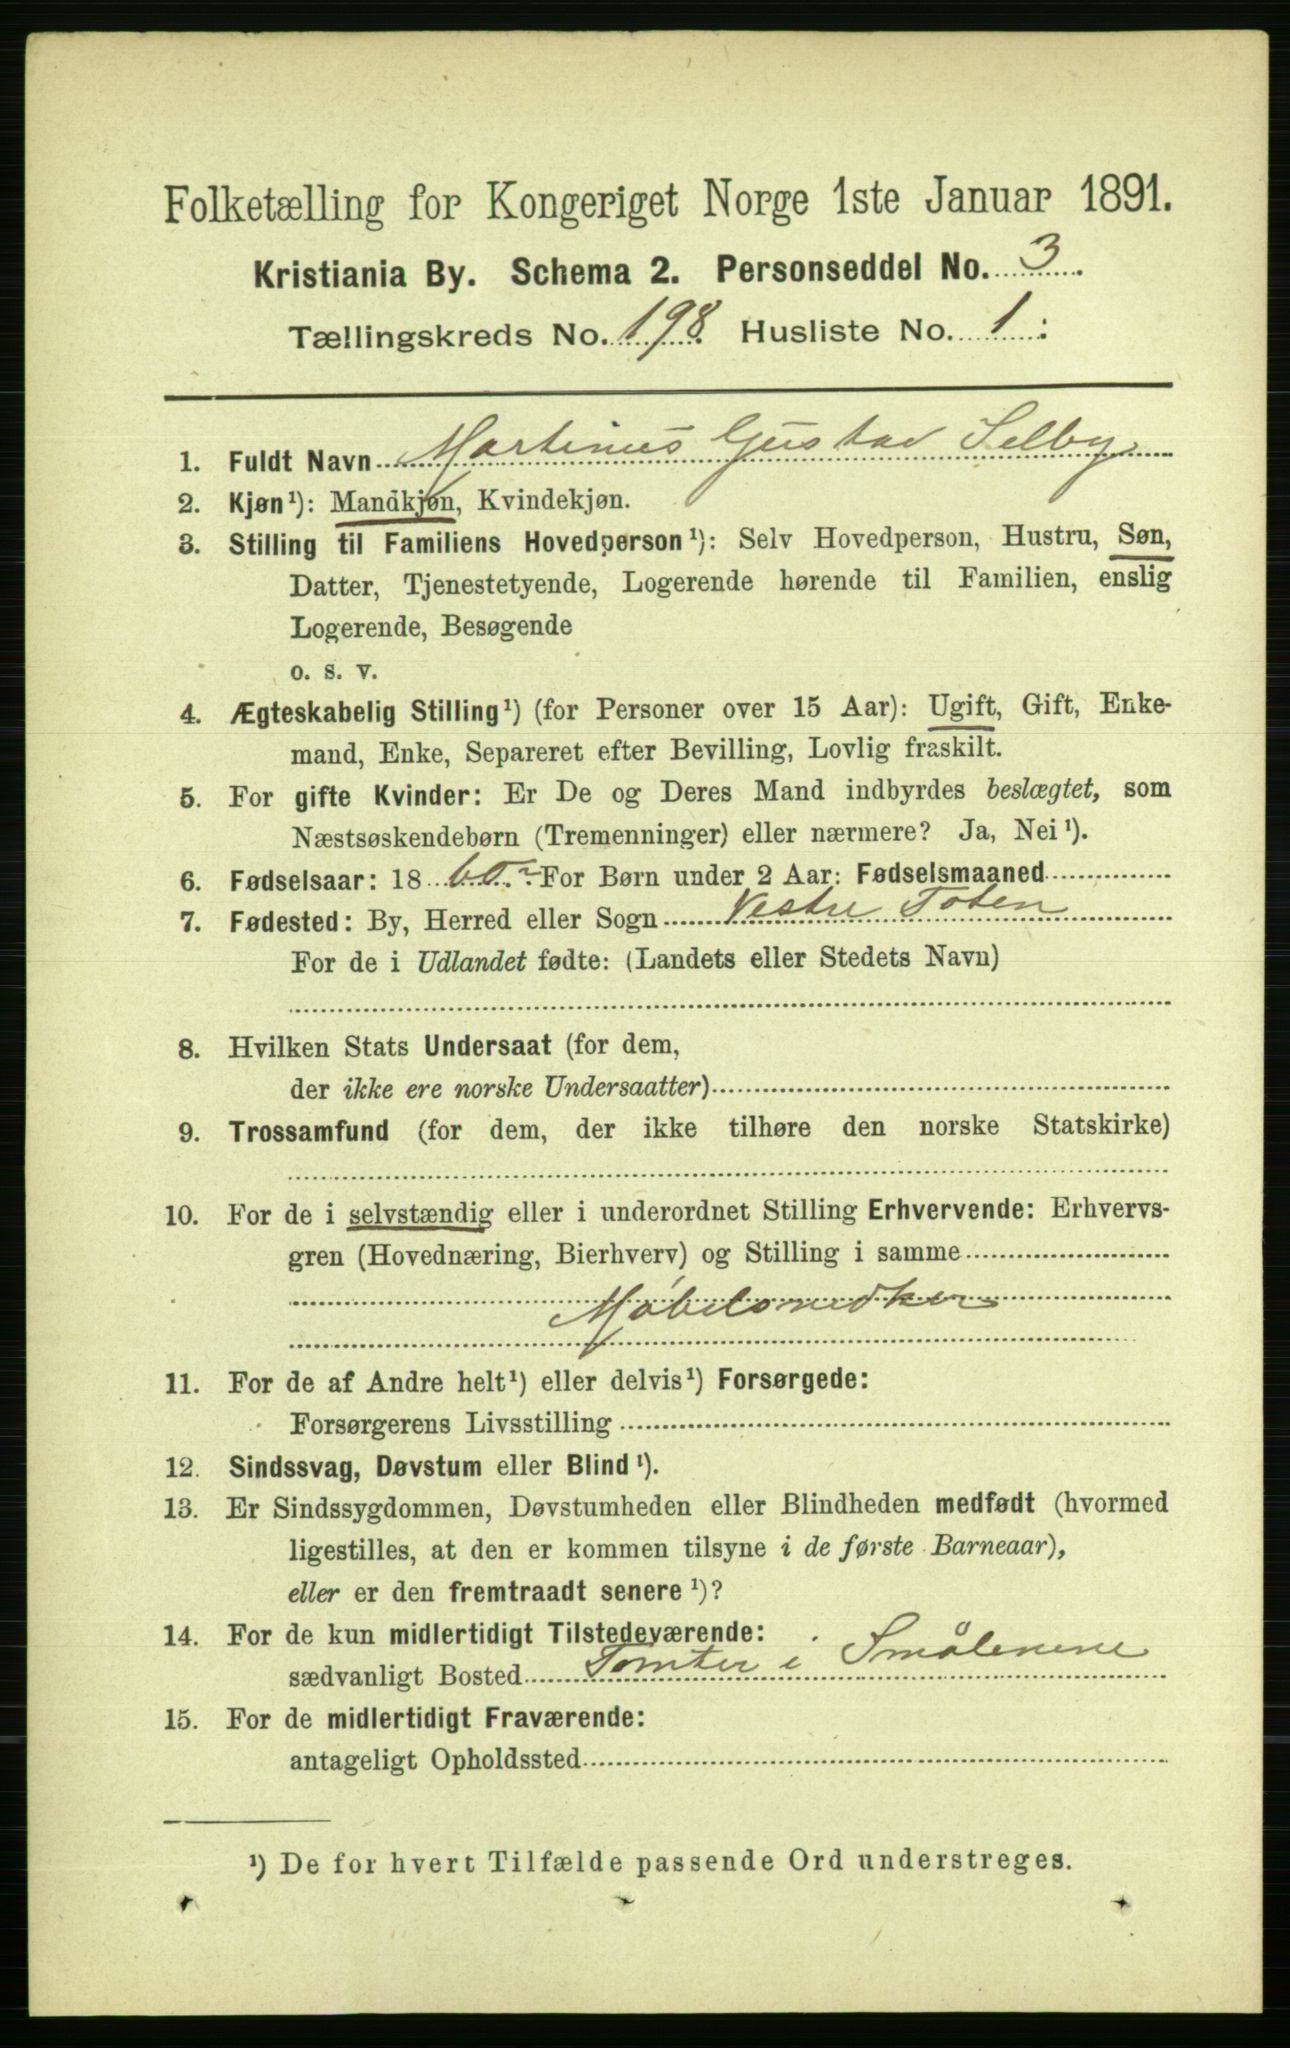 Folketælling for Kongeriget Norge 1ste Januar 1891.
Kristiania By. Schema 2. Personseddel No. 3.
Tællingskreds No. 198. Husliste No. 1:
1. Fuldt Navn Martinus Gustav Selby
2. Kjøn¹): Mandkjøn, Kvindekjøn.
3. Stilling til Familiens Hovedperson¹): Selv Hovedperson, Hustru, Søn,
Datter, Tjenestetyende, Logerende hørende til Familien, enslig
Logerende, Besøgende
o. s. v.
4. Ægteskabelig Stilling¹) (for Personer over 15 Aar): Ugift, Gift, Enke-
mand, Enke, Separeret efter Bevilling, Lovlig fraskilt.
5. For gifte Kvinder: Er De og Deres Mand indbyrdes beslægtet, som
Næstsøskendebørn (Tremenninger) eller nærmere? Ja, Nei¹).
6. Fødselsaar: 1860. For Børn under 2 Aar: Fødselsmaaned
7. Fødested: By, Herred eller Sogn Vestre Toten
For de i Udlandet fødte: (Landets eller Stedets Navn)
8. Hvilken Stats Undersaat (for dem,
der ikke ere norske Undersaatter)
9. Trossamfund (for dem, der ikke tilhøre den norske Statskirke)
10. For de i selvstændig eller i underordnet Stilling Erhvervende: Erhvervs-
gren (Hovednæring, Bierhverv) og Stilling i samme
Møbelsnedker
11. For de af Andre helt¹) eller delvis¹) Forsørgede:
Forsørgerens Livsstilling
12. Sindssvag, Døvstum eller Blind¹).
13. Er Sindssygdommen, Døvstumheden eller Blindheden medfødt (hvormed
ligestilles, at den er kommen tilsyne i de første Barneaar),
eller er den fremtraadt senere¹)?
14. For de kun midlertidigt Tilstedeværende:
sædvanligt Bosted Tomter i Smålenene
15. For de midlertidigt Fraværende:
antageligt Opholdssted
¹) De for hvert Tilfælde passende Ord understreges.